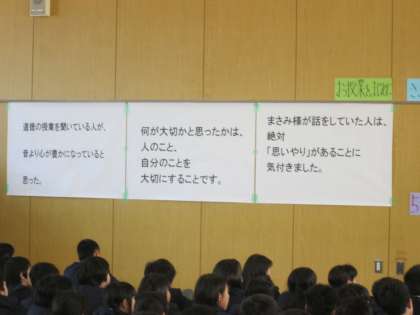 道徳の授業を聞いている人が、
昔より心が豊かになっていると
思った。
何が大切かと思ったかは、
人のこと、
自分のことを
大切にすることです。
まさみ様が話をしていた人は、
絶対
「思いやり」があることに
気付きました。